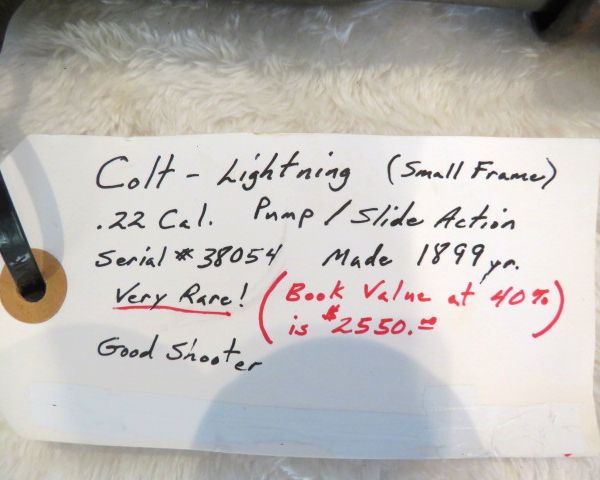 Colt - Lightning (Small Frame)
.22 Cal. Pump / Slide Action
Serial # 38054 Made 1899 yr.
Very Rare! (Book Value at 40%
is $2550.00)
Good Shooter